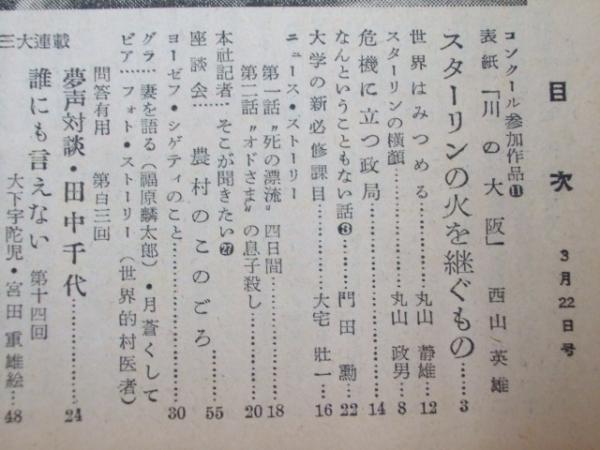 目次 3月22日号
コンクール参加作品⓫
表紙「川の大阪」 西山英雄
スターリンの火を継ぐもの……3
世界はみつめる……丸山静雄…12
スターリンの横顔……丸山政男…8
危機に立つ政局……14
なんということもない話❸……門田勲…22
大学の新必修課目……大宅壮一…16
ニュース・ストーリー
第一話〝死の漂流〟四日間……18
第二話〝オドさま〟の息子殺し…20
本社記者…そこが聞きたい㉗
座談会…農村のこのごろ……55
ヨーゼフ・シゲティのこと……30
グラ…妻を語る(福原麟太郎)・月蒼くして
ビア…フォト・ストーリー(世界的村医者)
三大連載
問答有用 第百三回
夢声対談・田中千代……24
誰にも言えない 第十四回
大下宇陀児・宮田重雄絵…48